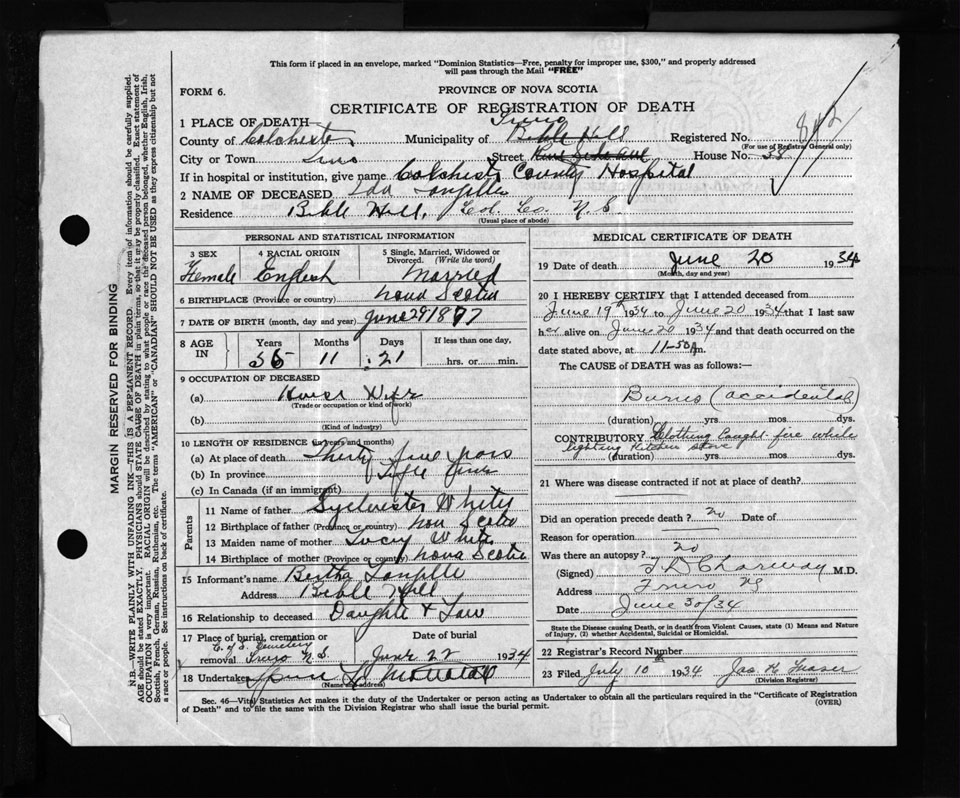 This form if placed in an envelope, marked "Dominion Statistics—Free, penalty for improper use, $300," and properly addressed
will pass through the Mail "FREE"
FORM 6.
PROVINCE OF NOVA SCOTIA
CERTIFICATE OF REGISTRATION OF DEATH
1 PLACE OF DEATH Truro
County of Colchester Municipality of Bible Hill Registered No. 842
(For use of Registrar General only)
City or Town Truro Street House No. 38
If in hospital or institution, give name Colchester County Hospital
2 NAME OF DECEASED Ida
Residence Bible Hill, Col. Co. N.S.
(Usual place of abode)
PERSONAL AND STATISTICAL INFORMATION
3 SEX 4 RACIAL ORIGIN 5 Single, Married, Widowed or
Divorced. (Write the word)
Female English Married
6 BIRTHPLACE (Province or country) Nova Scotia
7 DATE OF BIRTH (month, day and year) June 29 1877
8 AGE IN Years Months Days If less than one day,
56 11 21 hrs. or min.
9 OCCUPATION OF DECEASED
(a) House Wife
(Trade or occupation or kind of work)
(b)
(Kind of industry)
10 LENGTH OF RESIDENCE (in years and months)
(a) At place of death Thirty five years
(b) In province
(c) In Canada (if an immigrant)
Parents
11 Name of father Sylvester White
12 Birthplace of father (Province or country) Nova Scotia
13 Maiden name of mother Lucy White
14 Birthplace of mother (Province or country) Nova Scotia
15 Informant's name Bertha
Address Bible Hill
16 Relationship to deceased Daughter Law
17 Place of burial, cremation or Date of burial
C of E Cemetery
removal Truro N.S. June 22 1934
18 Undertaker
(Name and address)
MEDICAL CERTIFICATE OF DEATH
19 Date of death June 20 1934
(Month, day and year)
20 I HEREBY CERTIFY that I attended deceased from
June 19th 1934 to June 20 1934 that I last saw
her alive on June 20 1934 and that death occurred on the
date stated above, at 11-50 A m.
The CAUSE of DEATH was as follows:—
Burns (accidental)
(duration) yrs. mos. dys.
CONTRIBUTORY Clothing caught fire while
lighting kitchen stove
(duration) yrs. mos. dys.
21 Where was disease contracted if not at place of death?
Did an operation precede death? no Date of
Reason for operation
Was there an autopsy? no
(Signed) M.D.
Address Truro NS
Date June 30/34
State the Disease causing Death, or in death from Violent Causes, state (1) Means and Nature
of Injury, (2) whether Accidental, Suicidal or Homicidal.
22 Registrar's Record Number
23 Filed July 10 1934 Jas H Fraser
(Division Registrar)
Sec. 46—Vital Statistics Act makes it the duty of the Undertaker or person acting as Undertaker to obtain all the particulars required in the "Certificate of Registration
of Death" and to file the same with the Division Registrar who shall issue the burial permit.
(OVER)
MARGIN RESERVED FOR BINDING
N.B.—WRITE PLAINLY WITH UNFADING INK—THIS IS A PERMANENT RECORD. Every item of information should be carefully supplied.
AGE should be stated EXACTLY. PHYSICIANS should STATE CAUSE OF DEATH in plain terms, so that it may be properly classified. Exact statement of
OCCUPATION is very important. RACIAL ORIGIN will be described by stating to what people or race the deceased person belonged, whether English, Irish,
Scottish, French, German, Russian, Ruthenian, etc. The terms "AMERICAN" or "CANADIAN" SHOULD NOT BE USED as they express citizenship but not
a race or people. See instructions on back of certificate.